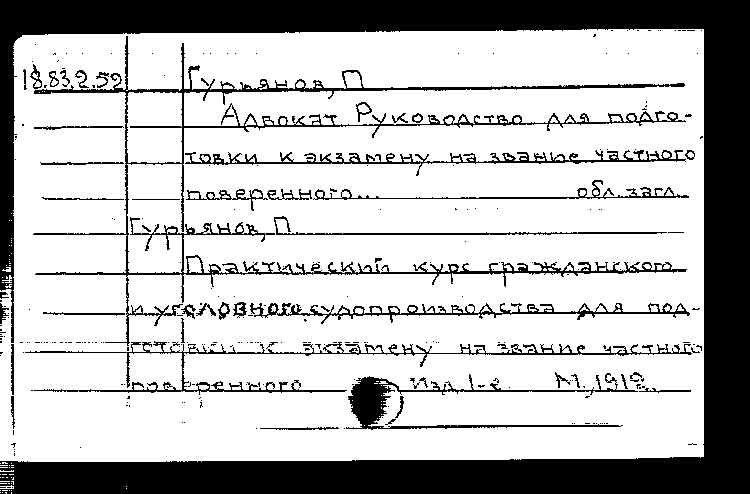 18.83.2.52 Гурьянов, П
Адвокат Руководство для подго-
товки к экзамену на звание частного
поверенного... обл. загл.
Гурьянов, П
Практический курс гражданского
и уголовного судопроизводства для под-
готовки к экзамену на звание частного
поверенного Изд. 1-е М., 1912.